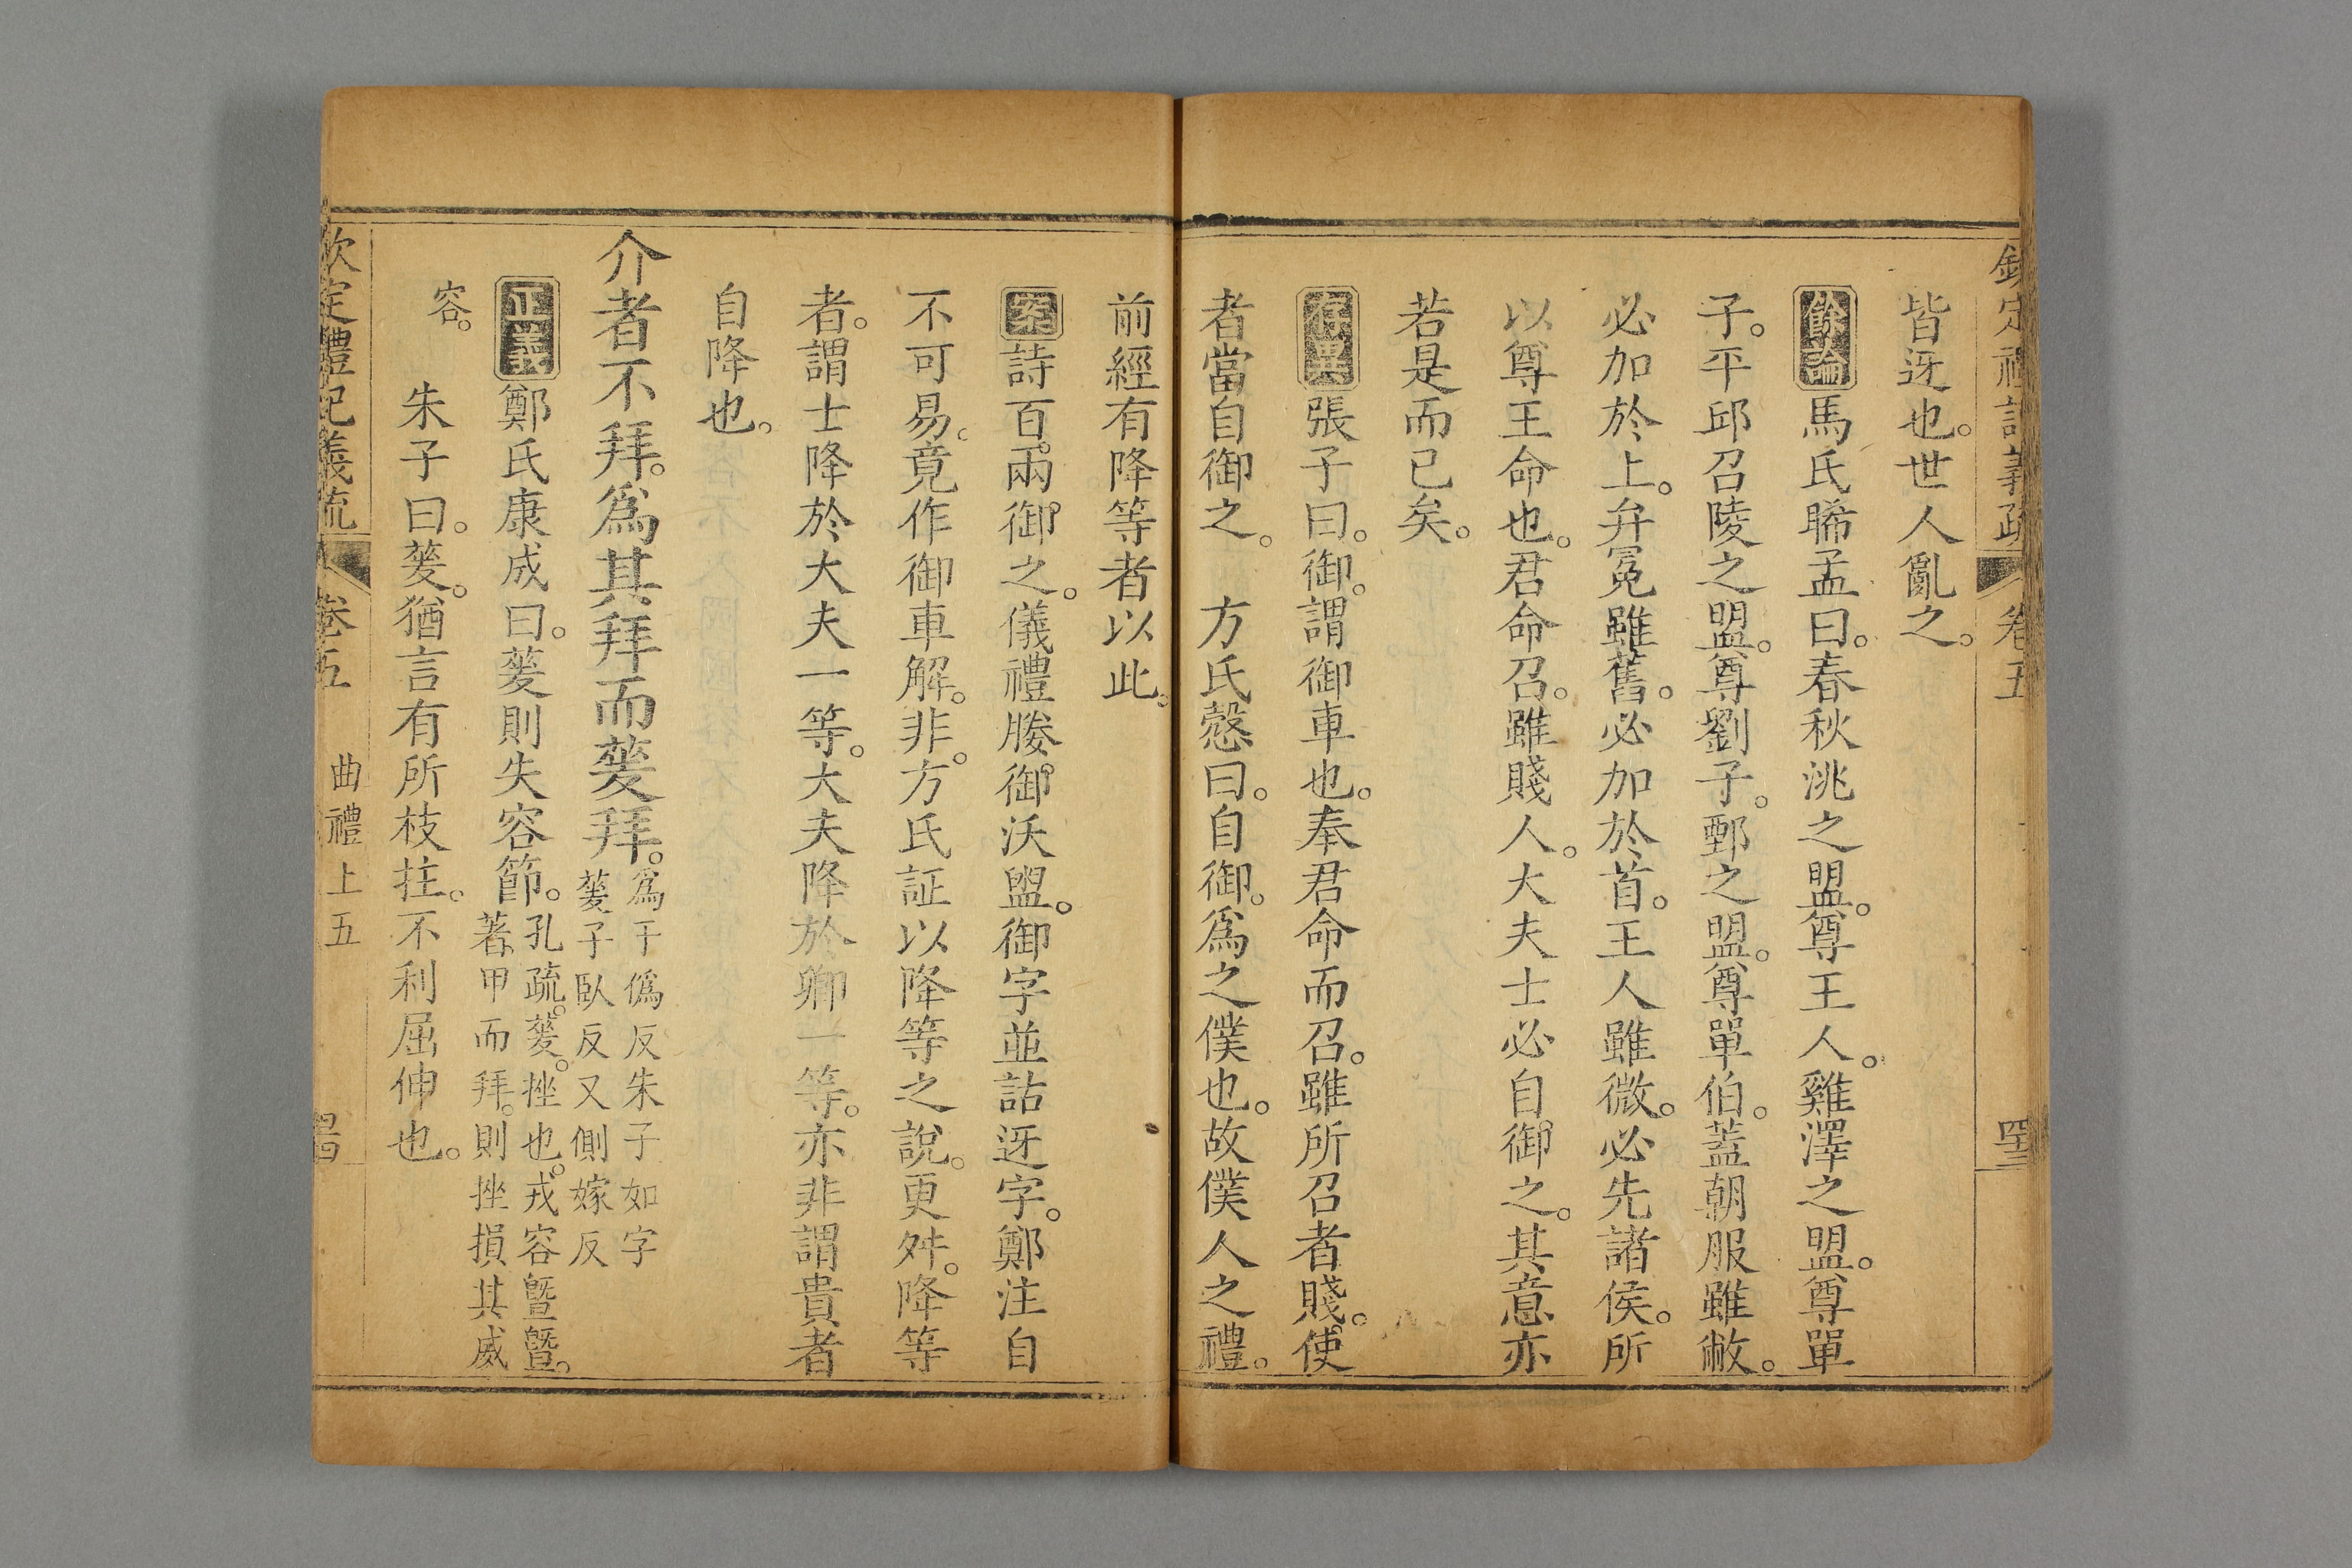 欽定禮記義疏 卷五
皆迓也。世人亂之。
餘論馬氏睎孟曰。春秋洮之盟。尊王人。雞澤之盟。尊單
子。平邱召陵之盟。尊劉子。鄄之盟。尊單伯。蓋朝服雖敝。
必加於上。弁冕雖舊。必加於首。王人雖微。必先諸侯。所
以尊王命也。君命召。雖賤人。大夫士必自御之。其意亦
若是而已矣。
存異張子曰。御。謂御車也。奉君命而召。雖所召者賤。使
者當自御之。 方氏慤曰。自御。爲之僕也。故僕人之禮。
前經有降等者以此。
案詩百兩御之。儀禮媵御沃盥。御字並詁迓字。鄭注自
不可易。竟作御車解。非。方氏証以降等之說。更舛。降等
者。謂士降於大夫一等。大夫降於卿一等。亦非謂貴者
自降也。
介者不拜。爲其拜而蓌拜。爲于僞反朱子如字
蓌子臥反又側嫁反
正義鄭氏康成曰。蓌則失容節。孔疏。蓌。挫也。戎容暨暨。
著甲而拜。則挫損其威
容。
朱子曰。蓌。猶言有所枝拄。不利屈伸也。
欽定禮記義疏 卷五 曲禮上五